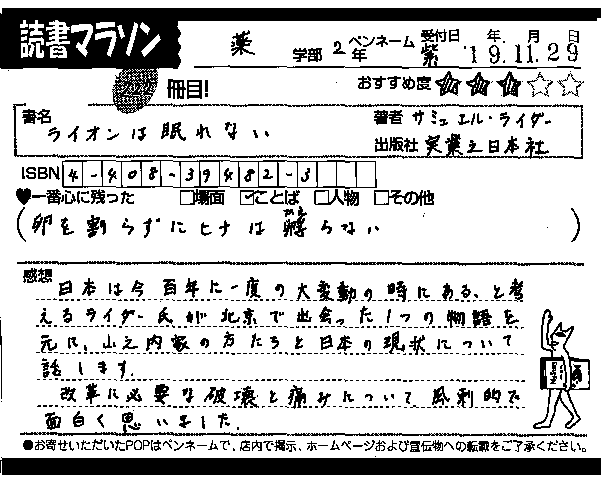 読書マラソン
薬 学部 2年 ペンネーム 紫 受付日 '19年11月29日
冊目!
おすすめ度 ★★★☆☆
書名 ライオンは眠れない
著者 サミュエル・ライダー
出版社 実業之日本社
ISBN 4-408-39482-3
♥一番心に残った □場面 ☑ことば □人物 □その他
(卵を割らずにヒナは孵らない)
かえ
感想 日本は今百年に一度の大変動の時にある、と考
えるライダー氏が北京で出会った1つの物語を
元に、山之内家の方たちと日本の現状について
話します。
改革に必要な破壊と痛みについて風刺的で
面白く思いました。
●お寄せいただいたPOPはペンネームで、店内で掲示、ホームページおよび宣伝物への転載をご了承ください。